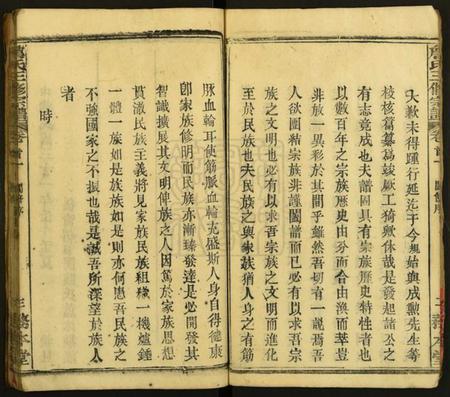 大歉未得運行延迄于今與始與成勲先生等
校核篇纂為竣厥工猗歟休哉是發起諸公之
有志竟成也夫譜固具有宗族歷史特性者也
以數百年之宗族歷史由分而合由渙而萃豈
非放一異彩於其間乎雖然吾切有一說焉吾
人欲團結宗族非謹闔譜而已必有以求吾宗
族之文明也必有以求吾宗族之文明而進化
至於民族也夫民族之與家族猶人身之有筋
脉血輪耳使筋脈血輪充盛斯人身自得健康
卽家族修明而民族亦漸臻發達是宜開發其
智識擴展其文明俾族之人因篤於家族思想
貫澈民族主義將見家族民族組織一機爐錘
一體一族如是族族如是則亦何患吾民族之
不強國家之不振也哉是誠吾所深望於族人
者
時
氏三修宗譜
卷首一
三務本堂